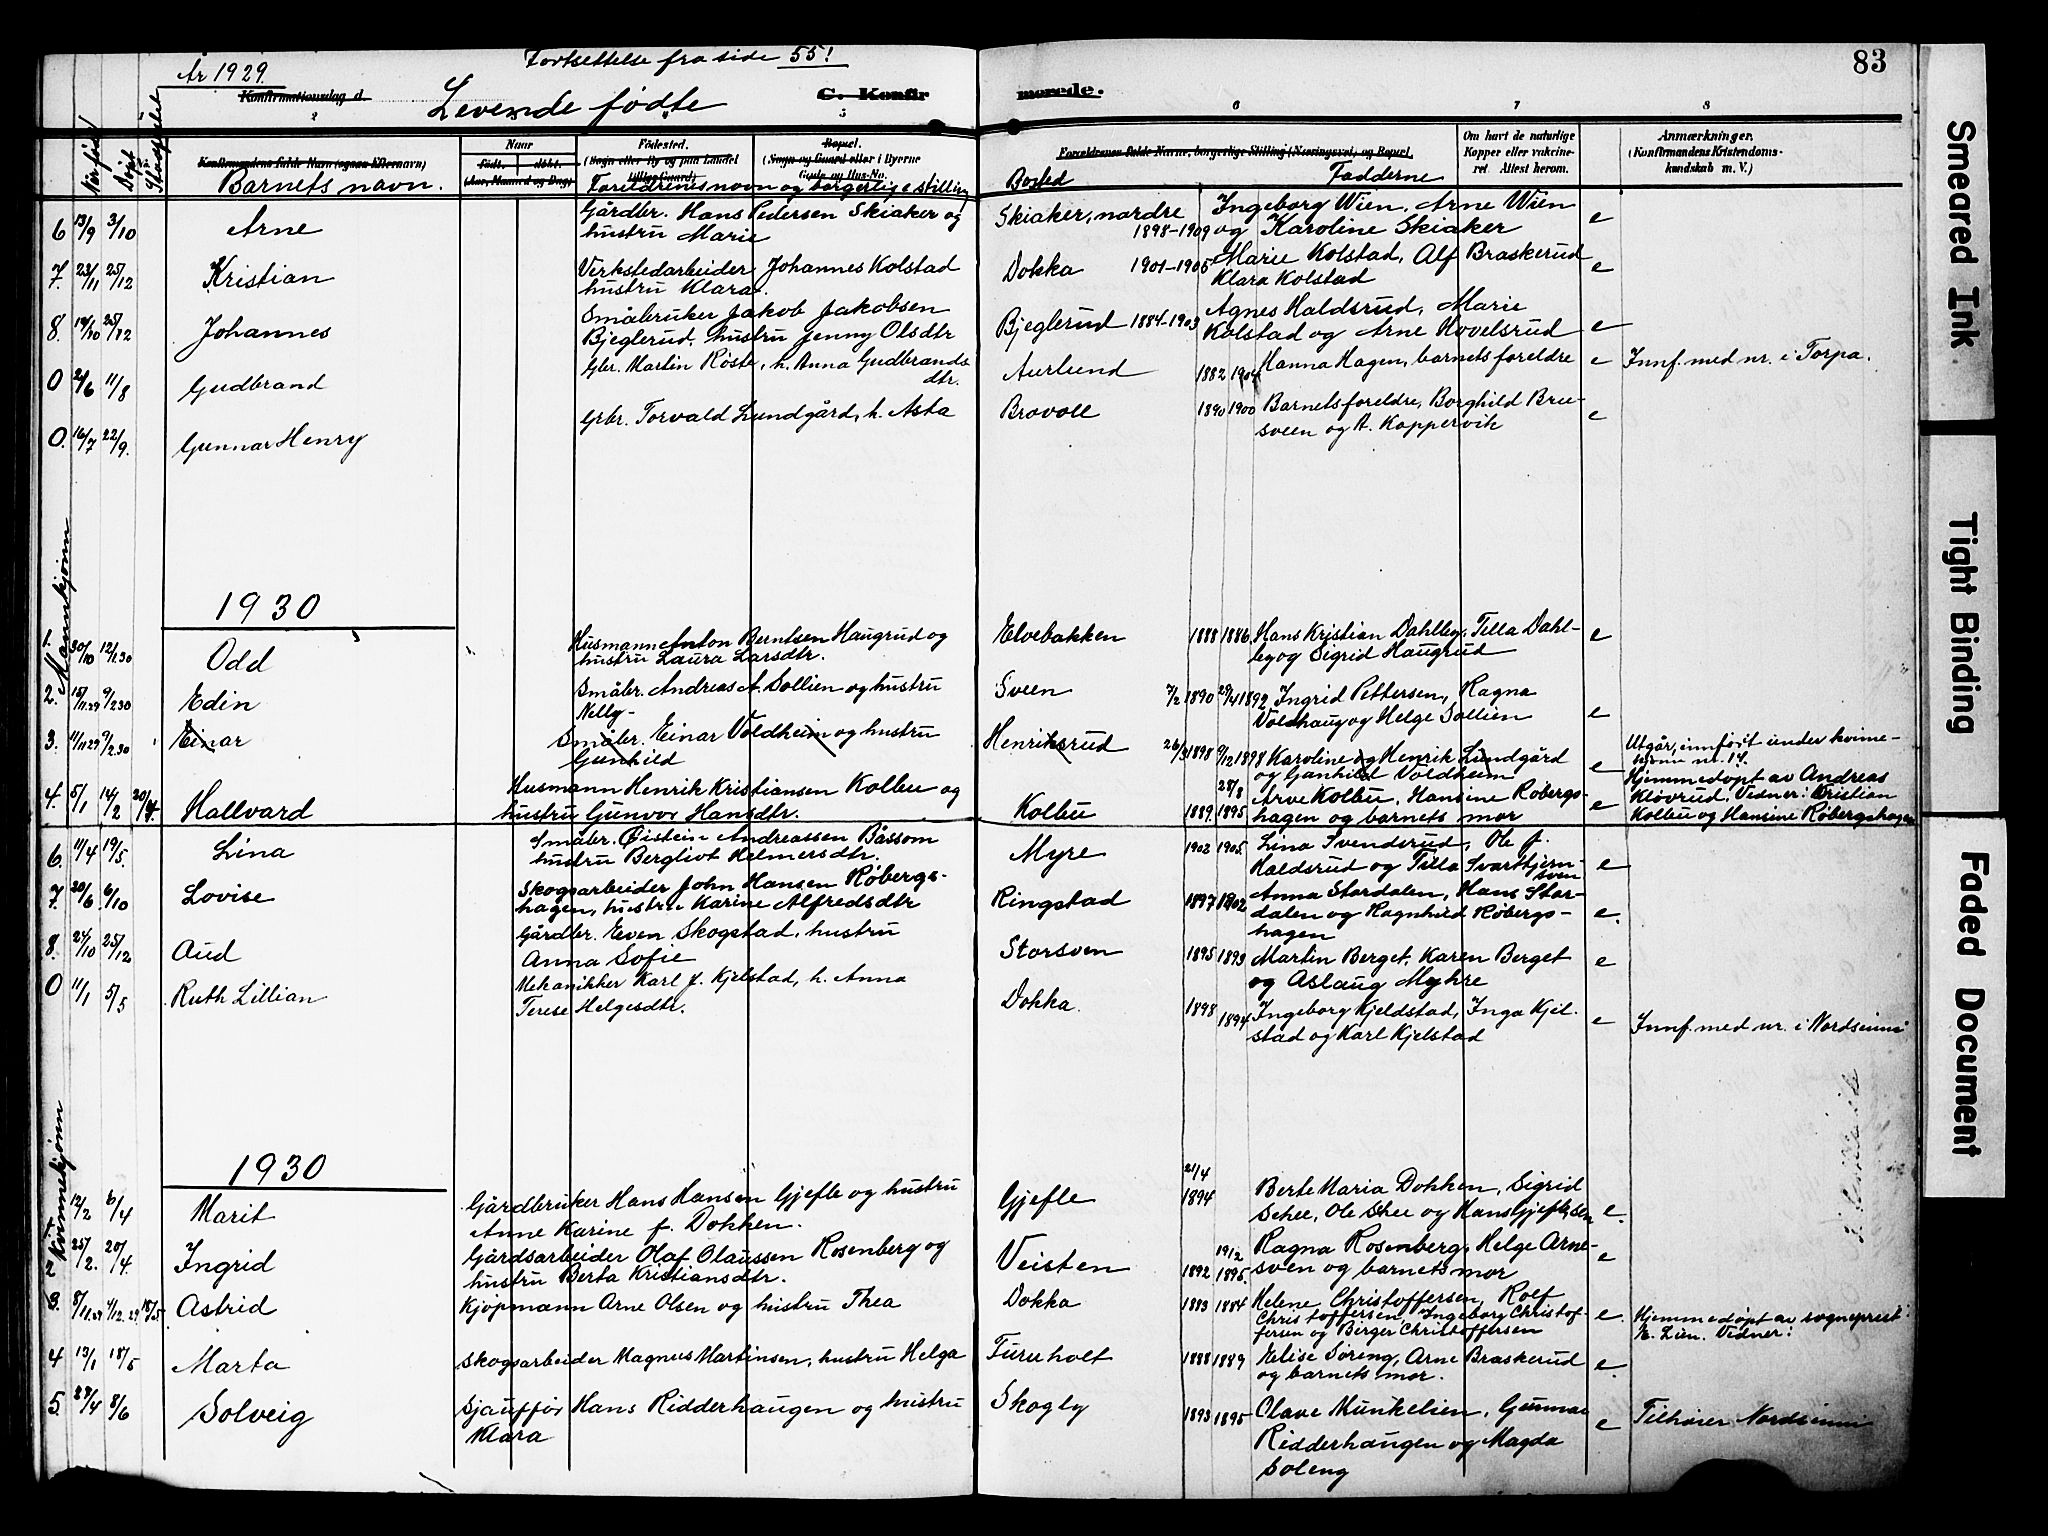 År 1929.
Fortsettelse fra side 55!
83
Konfirmationsdag d.
Levende født
C. Konfir
merede.
2
5
6
7
8
Når født
Døpt
No.
Stadfestet
Konfirmandens fulde Navn (ogsaa Efternavn)
Barnets navn.
Naar
født,
døbt.
(Aar, Maaned og Dag)
Fødested.
(Sogn eller By og paa Landet tillige Gaard)
Bopæl.
(Sogn og Gaard eller i Byerne Gade og Hus-No.
Foreldrenes navn og borgerlige stilling
Forældrenes fulde Navne, borgerlige Stilling (Næringsvei) og Bopæl.
Bosted
Fadderne
Om havt de naturlige Kopper eller vakcineret. Attest herom.
Anmærkninger.
(Konfirmandens Kristendomskundskab m. V.)
6 13/9 3/10 Arne Gårdbr. Hans Pedersen Skiaker og Skiaker, nordre Ingeborg Wien, Arne Wien e
hustru Marie 1898-1909 og Karoline Skiaker
7. 23/11 25/12 Kristian Verkstedarbeider Johannes Kolstad Dokka 1901-1905 Marie Kolstad, Alf Braskerud e
hustru Klara. Klara Kolstad
8. 19/10 25/12 Johannes Småbruker Jakob Jakobsen Bjeglerud 1884-1903 Agnes Haldsrud, Marie
Bjeglerud, hustru Jenny Olsdtr Kolstad og Arne Hovelsrud e
0 2/6 11/8 Gudbrand Gbr. Martin Røste, h. Anna Gudbrands Aurlund 1882 1904 Hanna Hagen, barnets foreldre e Innf. med nr. i Torpa.
dtr.
0. 16/7 22/9. Gunnar Henry Grbr. Torvald Lundgård, h. Asta Brovoll 1890 1900 Barnets foreldre, Borghild Bru-
sveen og A. Koppervik e
Mannkjønn
1930
1. 30/10 12/1.30 Odd Husmann Anton Berntsen Haugrud og Elvebakken 1888 1886 Hans Kristian Dahlby, Tilla Dahl- e
hustru Laura Larsdtr. by og Sigrid Haugrud
2. 15/11.29 9/2.30 Edin Småbr. Andreas A. Sollien og hustru Sveen 7/2 1890 29/4 1892 Ingrid Pettersen, Ragna
Nelly- Voldhaug og Helge Sollien e
3. 11/11 29 9/2.30 Einar Småbr. Einar Voldheim og hustru Henriksrud 26/3 1898 9/12 1898 Karoline og Henrik Lundgård Utgår, innført under kvinne-
Gunhild og Gunhild Voldheim e kjønn nr. 14.
4. 5/1 14/2 20/4 Hallvard Husmann Henrik Kristiansen Kolbu og Kolbu 1889 28/8 1895 Arve Kolbu, Hansine Røbergs- e Hjemmedøpt av Andreas
hustru Gunvor Hansdtr. hagen og barnets mor Kløvrud. Vidner: Kristian
Kolbu og Hansine Røbergshagen
6. 11/4 19/5. Lina Småbr. Øistein Andreassen Båssom Myre 1902 1905. Lina Svendsrud, Ole J.
hustru Bergliot Helmersdtr. Haldsrud og Tilla Svarttjern- e
sven
7. 20/6 6/10 Lovise Skogsarbeider John Hansen Røbergs- Ringstad 1897 1902 Anna Stordalen, Hans Stor-
hagen, hustru Karine Alfredsdtr dalen og Ragnhild Røbergs- e.
hagen
8. 24/10 25/12 Aud Gårdbr. Even Skogstad, hustru Storsven 1895 1893 Martin Berget, Karen Berget e
Anna Sofie og Aslaug Myhre
0 11/1 5/5 Ruth Lillian Mekanikker Karl J. Kjelstad, h. Anna Dokka 1898 1894 Ingeborg Kjeldstad, Inga Kjel- e Innf. med nr. i Nordsinni
Terese Helgesdtr. stad og Karl Kjelstad
Kvinnekjønn
1930
1 12/2 6/4 Marit Gårdbruker Hans Hansen Gjefle og hustru Gjefle 21/4 1894 Berte Maria Dokken, Sigrid
Anne Karine f. Dokken. Schee, Ole Shee og Hans Gjeflesen e.
2 25/2. 20/4. Ingrid Gårdsarbeider Olaf Olaussen Rosenberg og Veisten 1892 19/2 1895. Ragna Rosenberg, Helge Arne- e
hustru Berta Kristiansdtr. sven og barnets mor
3. 8/11.29 4/12.29 18/5. Astrid Kjøpmann Arne Olsen og hustru Thea Dokka 1883 1884 Helene Christoffersen, Rolf
Christoffersen, Ingeborg Christof- e. Hjemmedøpt av sogneprest
fersen og Birger Christoffersen Vidner:
4 13/1 18/5 Marta Skogsarbeider Magnus Martinsen, hustru Helga Furuholt 1888 1889 Elise Søring, Arne Braskerud e.
og barnets mor.
5. 29/4 8/6 Solveig Sjauffør Hans Ridderhaugen og hustru Skogly 1893 1895 Olave Munkelien, Gunnar e Tilhører Nordsinni
Klara Ridderhaugen og Magda
Soleng
Smeared Ink
Tight Binding
Faded Document